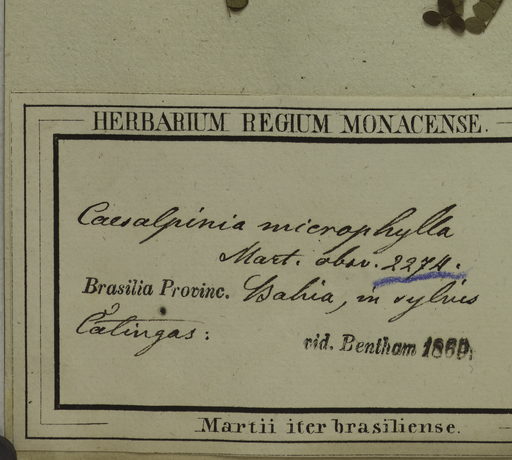 HERBARIUM REGIUM MONACENSE.
Caesalpinia microphylla
Mart. obsv. 2274.
Brasilia Provinc. Bahia, in sylvis
Catingas:
vid. Bentham 1869.
Martii iter brasiliense.